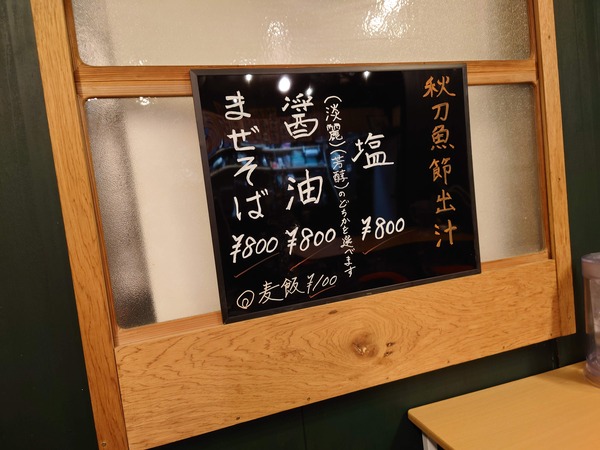 秋刀魚節出汁
塩 ¥800
(淡麗)(芳醇)のどちかを選べます
醤油 ¥800
まぜそば ¥800
麦飯 ¥100